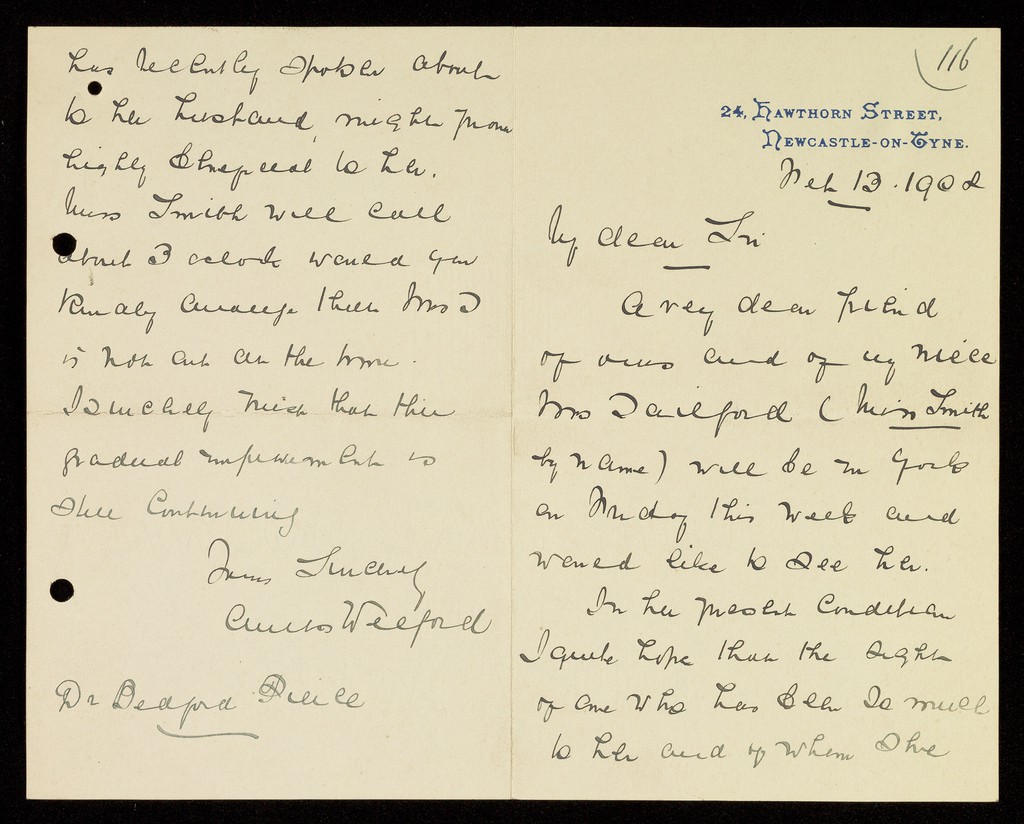 116
24, HAWTHORN STREET,
NEWCASTLE-ON-TYNE.
Feb 13. 1902
My dear Sir
A very dear friend
of ours and of my niece
Mrs Tailford (Miss Smith
by name) will be in York
on Friday this week and
would like to see her.
In her present condition
I quite hope that the sight
of one who has been so much
to her and of whom she
has recently spoken about
to her husband, might prove
highly beneficial to her.
Miss Smith will call
about 3 oclock would you
kindly arrange that Mrs T
is not out at the time.
I sincerely trust that the
gradual improvement is
still continuing
Yours Sincerely
Welford
Dr Bedford Pierce